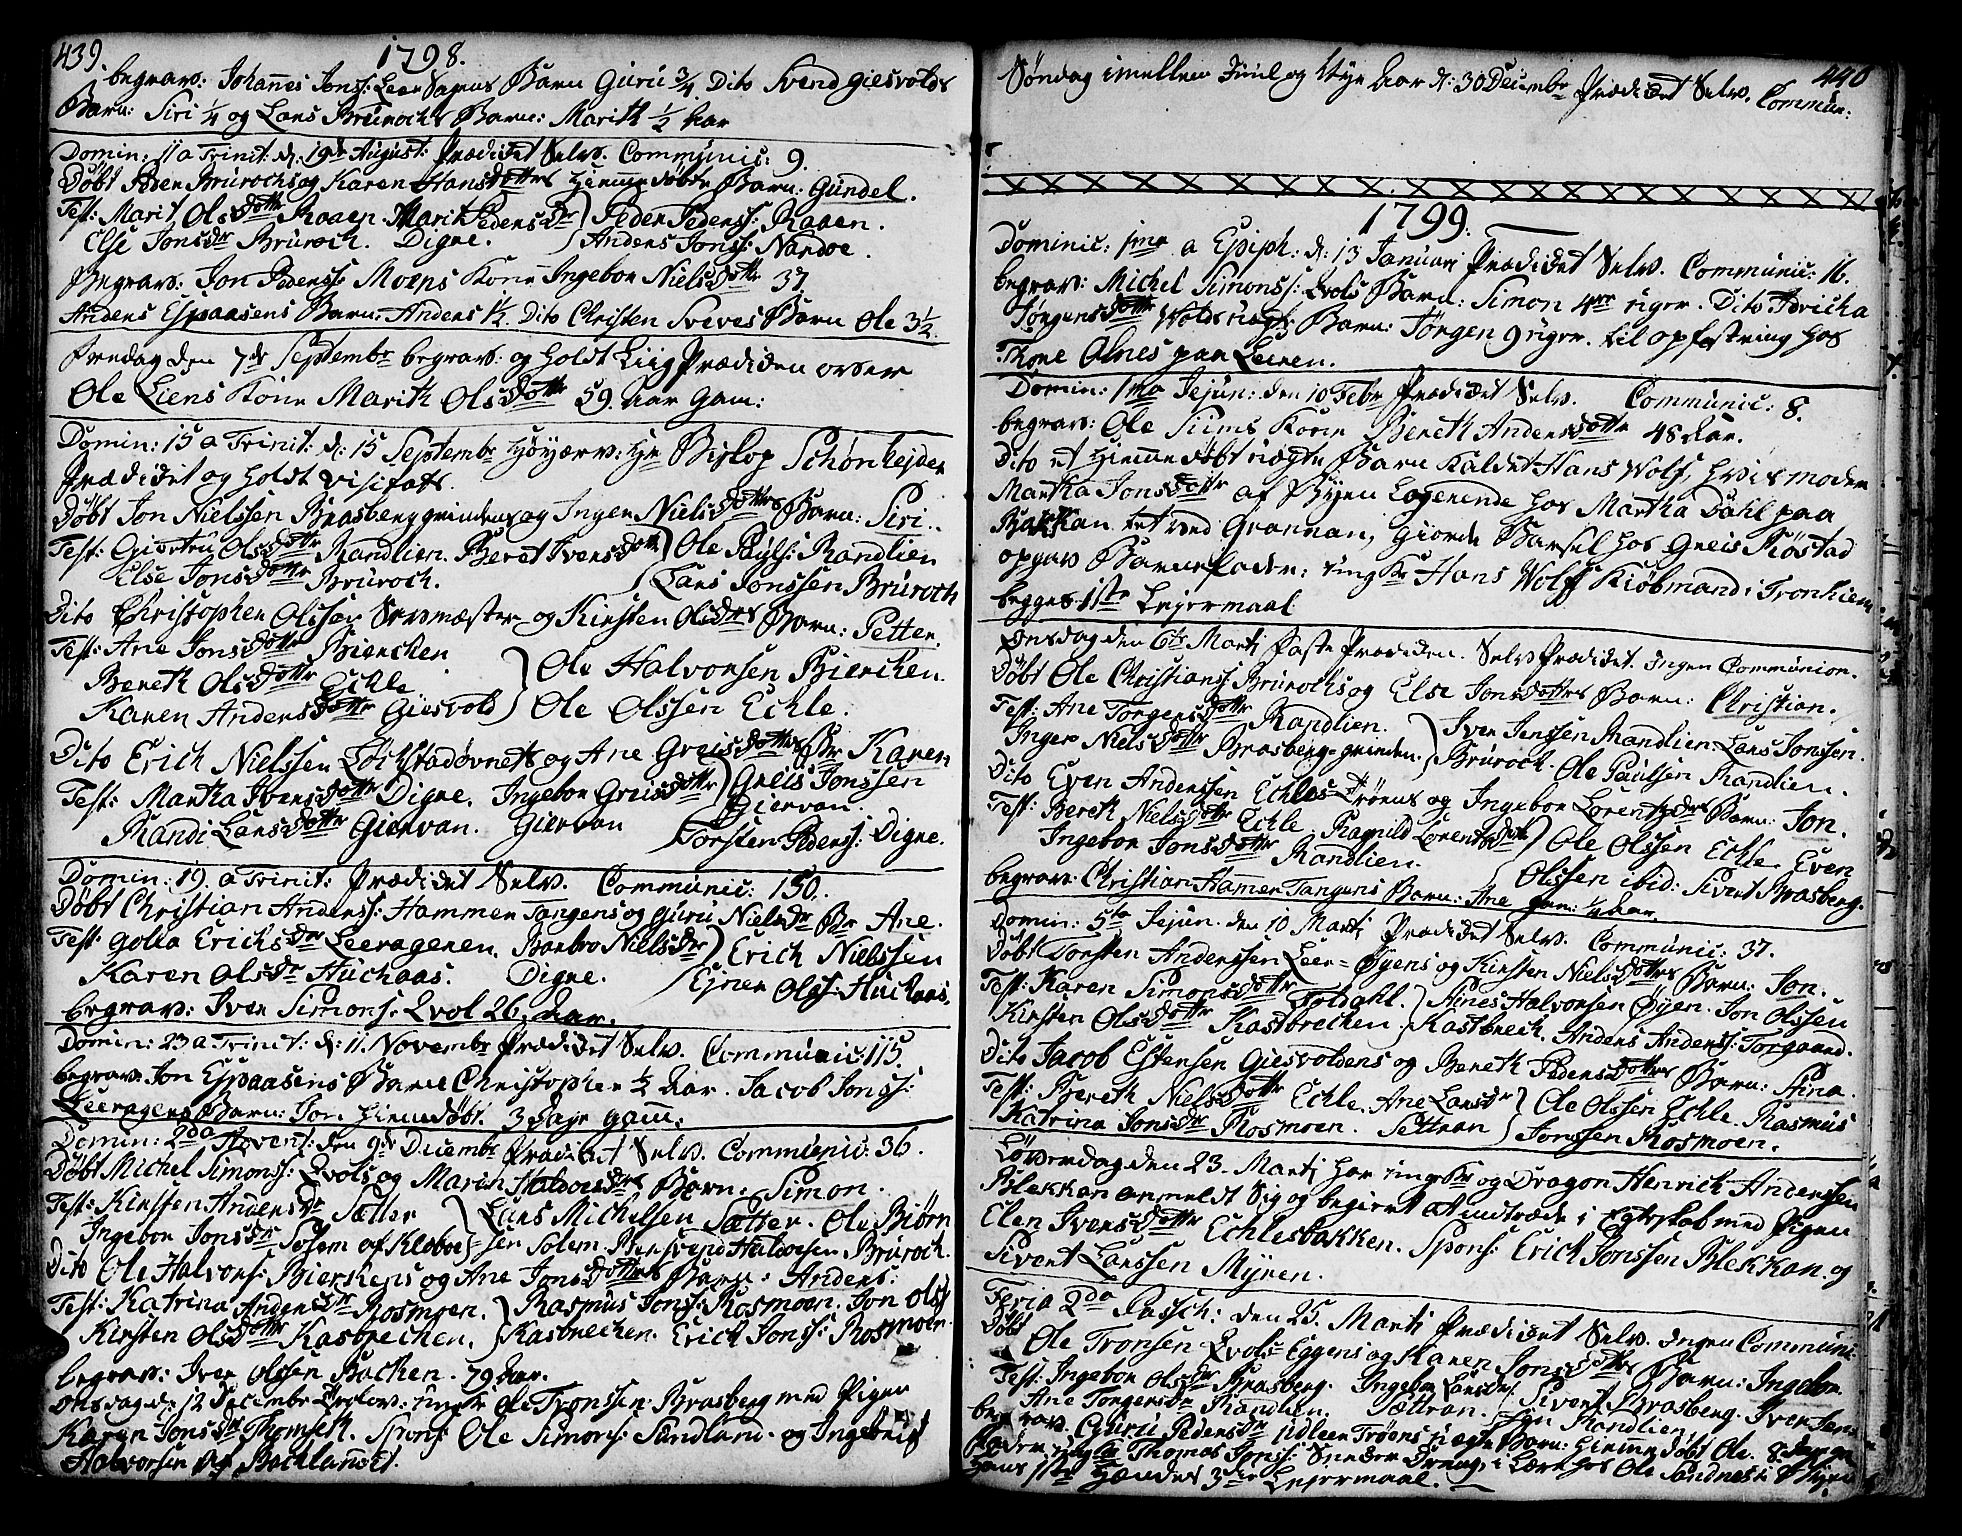 439. 1798.
begrav: Johannes Jons: Leer Barn Guru 3/4. Dito Svend Giesvolds
Barn: Siri 1/4 og Lars Brurochs Barn: Marith 1/2 Aar
Domin: 11 a Trinit: d: 19de August: Prædicket Selv. Communic: 9.
Døbt Peder Brurochs og Karen Hansdotters hiemmedøbte Barn: Gundel.
Test: Marit Olsdotter Raaen. Marit Pedersdr } Peder Peders: Raaen.
Else Jonsdr Bruroch. Digre. } Anders Jons: Nandoe.
Begrav: Jon Peders: Moens Kone Ingebor Nielsdotter 37.
Anders Espaasens Barn: Anders 1/2. Dito Christen Sveves Barn Ole 3 1/2.
Fredag den 7de Septembr begrav: og holdt Liig Prædicken over
Ole Liens Kone Marith Olsdotter 59. Aar gam:
Domin: 15 a Trinit: d: 15 Septembr Høyærv: Hr Biskop Schønhejder
Prædicket og holdt Visitats.
Døbt Jon Nielssen Brasberggrindens og Inger Nielsdotters Barn: Siri.
Test: Giertru Olsdotter Randlien. Beret Iversdotter } Ole Pauls: Randlien
Else Jonsdotter Bruroch. } Lars Jonssen Bruroch
Dito Christopher Olssen og Kirsten Olsdrs Barn: Petter.
Test: Ane Jonsdotter Bierchen
Bereth Olsdotter Echle } Ole Halvorsen Bierchen.
Karen Andersdotter Giesvold } Ole Olssen Echle.
Dito Erich Nielssen og Ane Greisdotters Br Karen
Test: Martha Iversdotter Digre. Ingebor Greisdotter } Greis Jonssen Giervan.
Randi Larsdotter Giervan. Giervan Torsten Peders: Digre.
Domin: 19. a Trinit: Prædicket Selv. Communic: 150.
Døbt Christian Anders: Hammer Tangens og Guru Nielsdr Br Ane.
Test: Golla Erichsdr Leeragenen. Barbro Nielsdr } Erich Nielssen
Karen Olsdr Huchaas. Digre. Ejner Ols: Huchaas.
begrav: Iver Simons: Qvol 26. Aar.
Domin: 23 a Trinit: d: 11. Novembr Prædicket Selv. Communic: 115
begrav: Jon Espaasens Barn Christopher 1/2 Aar. Jacob Jons:
Leeragens Barn: Jon. hiemedøbt. 3 dage gam:
Domin: 2da Advent: den 9de Decembr Prædicket Selv. Communic: 36.
Døbt Michel Simons: Qvols og Marit Halvorsdrs Barn: Simon.
Test: Kirsten Andersdr Sætter } Lars Michelsen Sætter. Ole Biørn
Ingebor Jonsdr Solem af Klæboe } sen Solem. Halvorsen Bruroch.
Dito Ole Halvors: Bierchens og Ane Jonsdotters Barn: Anders.
Test: Katrina Andersdr Rosmoen. } Rasmus Jons: Rosmoen. Jon Ols:
Kirsten Olsdotter Kasbrechen. } Kasbrechen. Erich Jons: Rosmoen.
begrav: Iver Olssen Bachen. 79 Aar.
Onsdag d: 12 Decembr Ungkr Ole Tronssen Brasberg med Pigen
Karen Jonsdr Thomset. Spons: Ole Simons: Sundland. og Ingebrigt
Halvorsen af Bachlandet.
Søndag imellem Juul og Nye Aar d: 30 Decembr Prædicket Selv. Commun: 440
1799.
Dominic: 1ma a Epiph: d: 13 Januari Prædicket Selv. Communic: 16.
begrav: Michel Simons: Qvols Barn: Simon 4re uger. Dito Fridricha
Jørgensdotter Barn: Jørgen 9 uger. til opfostring hos
Thore Olnes paa Leeren.
Domin: 1ma Jejun: den 10 Febr Prædicket Selv. Communic: 8.
begrav: Ole Kone Bereth Andersdotter 48 Aar.
Dito et Hiemmedøbt uægte Barn Kaldet Hans Wolf, hvis moder
Martha Jonsdotter af Byen Logerende hos Martha Dahl paa
Bakkan tet ved Grannan, giorde Barsel hos Greis Røstad
opgav Barnefader: ungkr Hans Wolf Kiøbmand i Tronhiem
begges 1ste Lejermaal
Onsdag den 6te Marti Faste Prædicken. Selv Prædicket. Ingen Communion.
Døbt Ole Christians: Brurochs og Else Jonsdotters Barn: Christian.
Test: Ane Torgersdotter Randlien. } Iver Jenssen Randlien. Lars Jonssen
Inger Nielsdotter Brasberg-grinden. } Bruroch. Ole Paulsen Randlien.
Dito Even Anderssen Echles Trøens og Ingebor Lorentzdrs Barn: Jon.
Test: Bereth Nielsdotter Echle. Ragnild Lorentsdotter } Ole Olssen Echle. Even
Ingebor Jonsdotter Randlien. } Olssen ibid: Sivert Brasberg.
begrav: Christian Hamer Tangens Barn: Ane gam: 1/4 Aar.
Domin: 5ta Jejun: den 10 Marti Prædicket Selv. Communic: 37.
Døbt Torsten Anderssen Leer=Øyens og Kirsten Nielsdotters Barn: Jon.
Test: Karen Simonsdotter Foldahl. } Aines Halvorsen Øyen. Jon Olssen
Kirsten Olsdotter Kastbrechen } Kastbreck. Anders Anders: Torgaard.
Dito Jacob Estensen Giesvoldens og Bereth Pedersdotters Barn: Stina.
Test: Bereth Nielsdotter Echle. Ane Larsdr } Ole Olssen Echle. Rasmus
Katrina Jonsdr Rosmoen. Settran } Jonssen Rosmoen.
Løverdag den 23. Marti har ungkr og Dragon Henrich Anderssen
Blekkan anmeldt Sig og begieret at indtræde i Egteskab med Pigen
Elen Iversdotter Echlesbakken. Spons: Erich Jonssen Blekkan og
Sivert Larssen Myren.
Feria 2da Pasch: den 25. Marti Prædicket Selv. Ingen Communi:
Døbt Ole Tronsen Qvols=Eggens og Karen Jonsdotters Barn: Ingebor
Test: Ingebor Olsdr Brasberg. Ingebor Larsdr } Sivert Brasberg. Iver Jen-
Ane Torgersdr Randlien. Sættran. } sen Randlien.
begrav: Guru Pedersdr uægte Barn: hiemmedøbt Ole. 8 dage gam
Fader ungkr Thomas Jons: Dreng, i Lære hos Ole Sandnes i Byen
hans 1ste Hændes 3die Lejermaal.